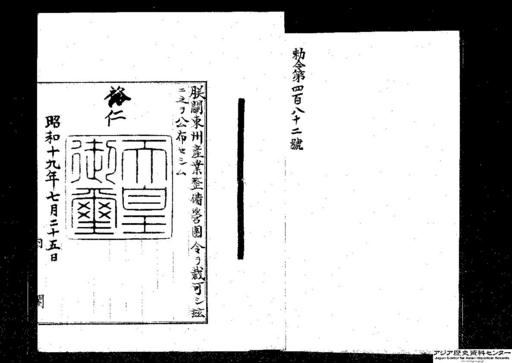 勅令第四百八十二號
朕關東州産業整備營團令ヲ裁可シ玆
ニ之ヲ公布セシム
裕仁
天皇
御璽
昭和十九年七月二十五日
内閣
アジア歴史資料センター
Japan Center for Asian Historical Records